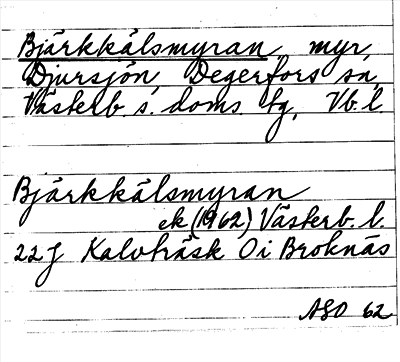 Bjärkkälsmyran, myr,
Djursjön, Degerfors sn,
Västerb. s. doms. tg, Vb. l.
Bjärkkälsmyran
ek (1962) Västerb. l.
22J Kalvträsk Oi Broknäs
ASO 62